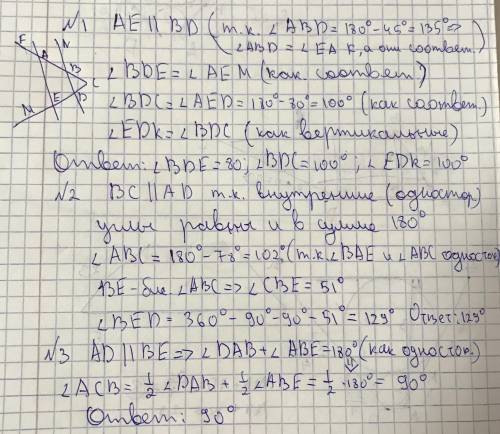 №1 AE || BD (т.к. ∠ABD = 180° - 45° = 135° =>
∠ABD = ∠EAK, а они соответ.)
∠BDE = ∠AEM (как соответ)
∠BDC = ∠AED = 180° - 80° = 100° (как соответ.)
∠EDK = ∠BDC (как вертикальные)
Ответ: ∠BDE = 80; ∠BDC = 100°; ∠EDK = 100°
№2 BC || AD т.к. внутренние (одностор)
углы равны и в сумме 180°
∠ABC = 180° - 78° = 102° (т.к. ∠BAE и ∠ABC одностор)
BE - бис. ∠ABC => ∠CBE = 51°
∠BED = 360° - 90° - 90° - 51° = 129° Ответ: 129°
№3 AD || BE => ∠DAB + ∠ABE = 180° (как одностор.)
∠ACB = 1/2 ∠DAB + 1/2 ∠ABE = 1/2 · 180° = 90°
Ответ: 90°
F
N
A
B
C
E
D
M